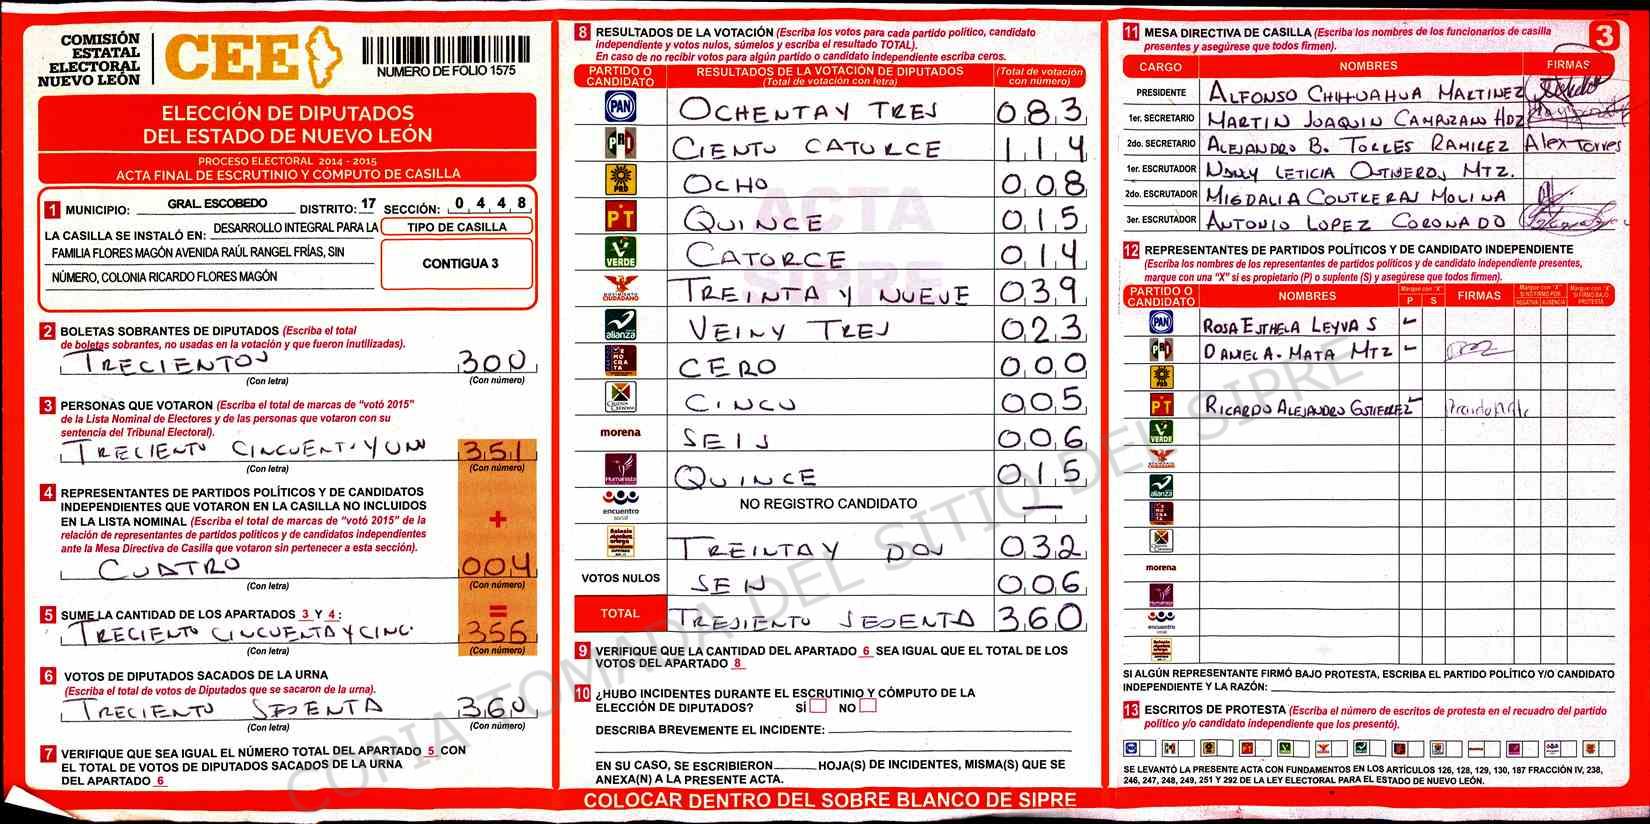 COMISIÓN
ESTATAL
ELECTORAL
NUEVO LEÓN
CEE
NUMERO DE FOLIO 1575
ELECCIÓN DE DIPUTADOS
DEL ESTADO DE NUEVO LEÓN
PROCESO ELECTORAL 2014 - 2015
ACTA FINAL DE ESCRUTINIO Y CÓMPUTO DE CASILLA
1 MUNICIPIO: GRAL. ESCOBEDO DISTRITO: 17 SECCIÓN: 0 4 4 8
LA CASILLA SE INSTALÓ EN: DESARROLLO INTEGRAL PARA LA
FAMILIA FLORES MAGÓN AVENIDA RAÚL RANGEL FRÍAS, SIN
NÚMERO, COLONIA RICARDO FLORES MAGÓN
TIPO DE CASILLA
CONTIGUA 3
2 BOLETAS SOBRANTES DE DIPUTADOS (Escriba el total
de boletas sobrantes, no usadas en la votación y que fueron inutilizadas).
TRECIENTOS 300
(Con letra) (Con número)
3 PERSONAS QUE VOTARON (Escriba el total de marcas de "votó 2015"
de la Lista Nominal de Electores y de las personas que votaron con su
sentencia del Tribunal Electoral).
TRECIENTO CINCUENT.YUNO 351
(Con letra) (Con número)
4 REPRESENTANTES DE PARTIDOS POLÍTICOS Y DE CANDIDATOS
INDEPENDIENTES QUE VOTARON EN LA CASILLA NO INCLUIDOS
EN LA LISTA NOMINAL (Escriba el total de marcas de "votó 2015" de la
relación de representantes de partidos políticos y de candidatos independientes
ante la Mesa Directiva de Casilla que votaron sin pertenecer a esta sección).
+
CUATRO 004
(Con letra) (Con número)
5 SUME LA CANTIDAD DE LOS APARTADOS 3 Y 4: =
TRECIENTO CINCUENTAYCINC. 355
(Con letra) (Con número)
6 VOTOS DE DIPUTADOS SACADOS DE LA URNA
(Escriba el total de votos de Diputados que se sacaron de la urna).
TRECIENTO SESENTA 360
(Con letra) (Con número)
7 VERIFIQUE QUE SEA IGUAL EL NÚMERO TOTAL DEL APARTADO 5 CON
EL TOTAL DE VOTOS DE DIPUTADOS SACADOS DE LA URNA
DEL APARTADO 6
8 RESULTADOS DE LA VOTACIÓN (Escriba los votos para cada partido político, candidato
independiente y votos nulos, súmelos y escriba el resultado TOTAL).
En caso de no recibir votos para algún partido o candidato independiente escriba ceros.
PARTIDO O CANDIDATO RESULTADOS DE LA VOTACIÓN DE DIPUTADOS (Total de votación con letra) (Total de votación con número)
PAN OCHENTAY TRES 083
PRI CIENTO CATORCE 114
PRD OCHO 008
PT QUINCE 015
VERDE CATORCE 014
MOVIMIENTO CIUDADANO TREINTA Y NUEVE 039
alianza VEINY TRES 023
DEMOCRATA CERO 000
CRUZADA CIUDADANA CINCO 005
morena SEIS 006
Humanista QUINCE 015
encuentro social NO REGISTRO CANDIDATO —
TREINTAY DOS 032
VOTOS NULOS SEIS 006
TOTAL TRESIENTO SESENTA 360
9 VERIFIQUE QUE LA CANTIDAD DEL APARTADO 6 SEA IGUAL QUE EL TOTAL DE LOS
VOTOS DEL APARTADO 8
10 ¿HUBO INCIDENTES DURANTE EL ESCRUTINIO Y CÓMPUTO DE LA
ELECCIÓN DE DIPUTADOS? SÍ NO
DESCRIBA BREVEMENTE EL INCIDENTE:
EN SU CASO, SE ESCRIBIERON HOJA(S) DE INCIDENTES, MISMA(S) QUE SE
ANEXA(N) A LA PRESENTE ACTA.
COLOCAR DENTRO DEL SOBRE BLANCO DE SIPRE
ACTA
SIPRE
COPIA TOMADA DEL SITIO DEL SIPRE
11 MESA DIRECTIVA DE CASILLA (Escriba los nombres de los funcionarios de casilla
presentes y asegúrese que todos firmen).
3
CARGO NOMBRES FIRMAS
PRESIDENTE ALFONSO CHIHUAHUA MARTINEZ
1er. SECRETARIO MARTIN JOAQUIN CAMPUZANO HDZ
2do. SECRETARIO ALEJANDRO B. TORRES RAMIREZ Alex Torres
1er. ESCRUTADOR NANY LETICIA MTZ.
2do. ESCRUTADOR MIGDALIA CONTRERAS MOLINA
3er. ESCRUTADOR ANTONIO LOPEZ CORONADO
12 REPRESENTANTES DE PARTIDOS POLÍTICOS Y DE CANDIDATO INDEPENDIENTE
(Escriba los nombres de los representantes de partidos políticos y de candidato independiente presentes,
marque con una "X" si es propietario (P) o suplente (S) y asegúrese que todos firmen).
PARTIDO O CANDIDATO NOMBRES Marque con "X" P S FIRMAS Marque con "X" SI NO FIRMÓ POR: NEGATIVA AUSENCIA Marque con "X" SI FIRMÓ BAJO PROTESTA
PAN ROSA ESTHELA LEYVA S
PRI DANIEL A. MATA MTZ
PRD
PT RICARDO ALEJANDRO GUTIERREZ
VERDE
alianza
morena
encuentro social
SI ALGÚN REPRESENTANTE FIRMÓ BAJO PROTESTA, ESCRIBA EL PARTIDO POLÍTICO Y/O CANDIDATO
INDEPENDIENTE Y LA RAZÓN:
13 ESCRITOS DE PROTESTA (Escriba el número de escritos de protesta en el recuadro del partido
político y/o candidato independiente que los presentó).
SE LEVANTÓ LA PRESENTE ACTA CON FUNDAMENTOS EN LOS ARTÍCULOS 126, 128, 129, 130, 187 FRACCIÓN IV, 238,
246, 247, 248, 249, 251 Y 292 DE LA LEY ELECTORAL PARA EL ESTADO DE NUEVO LEÓN.